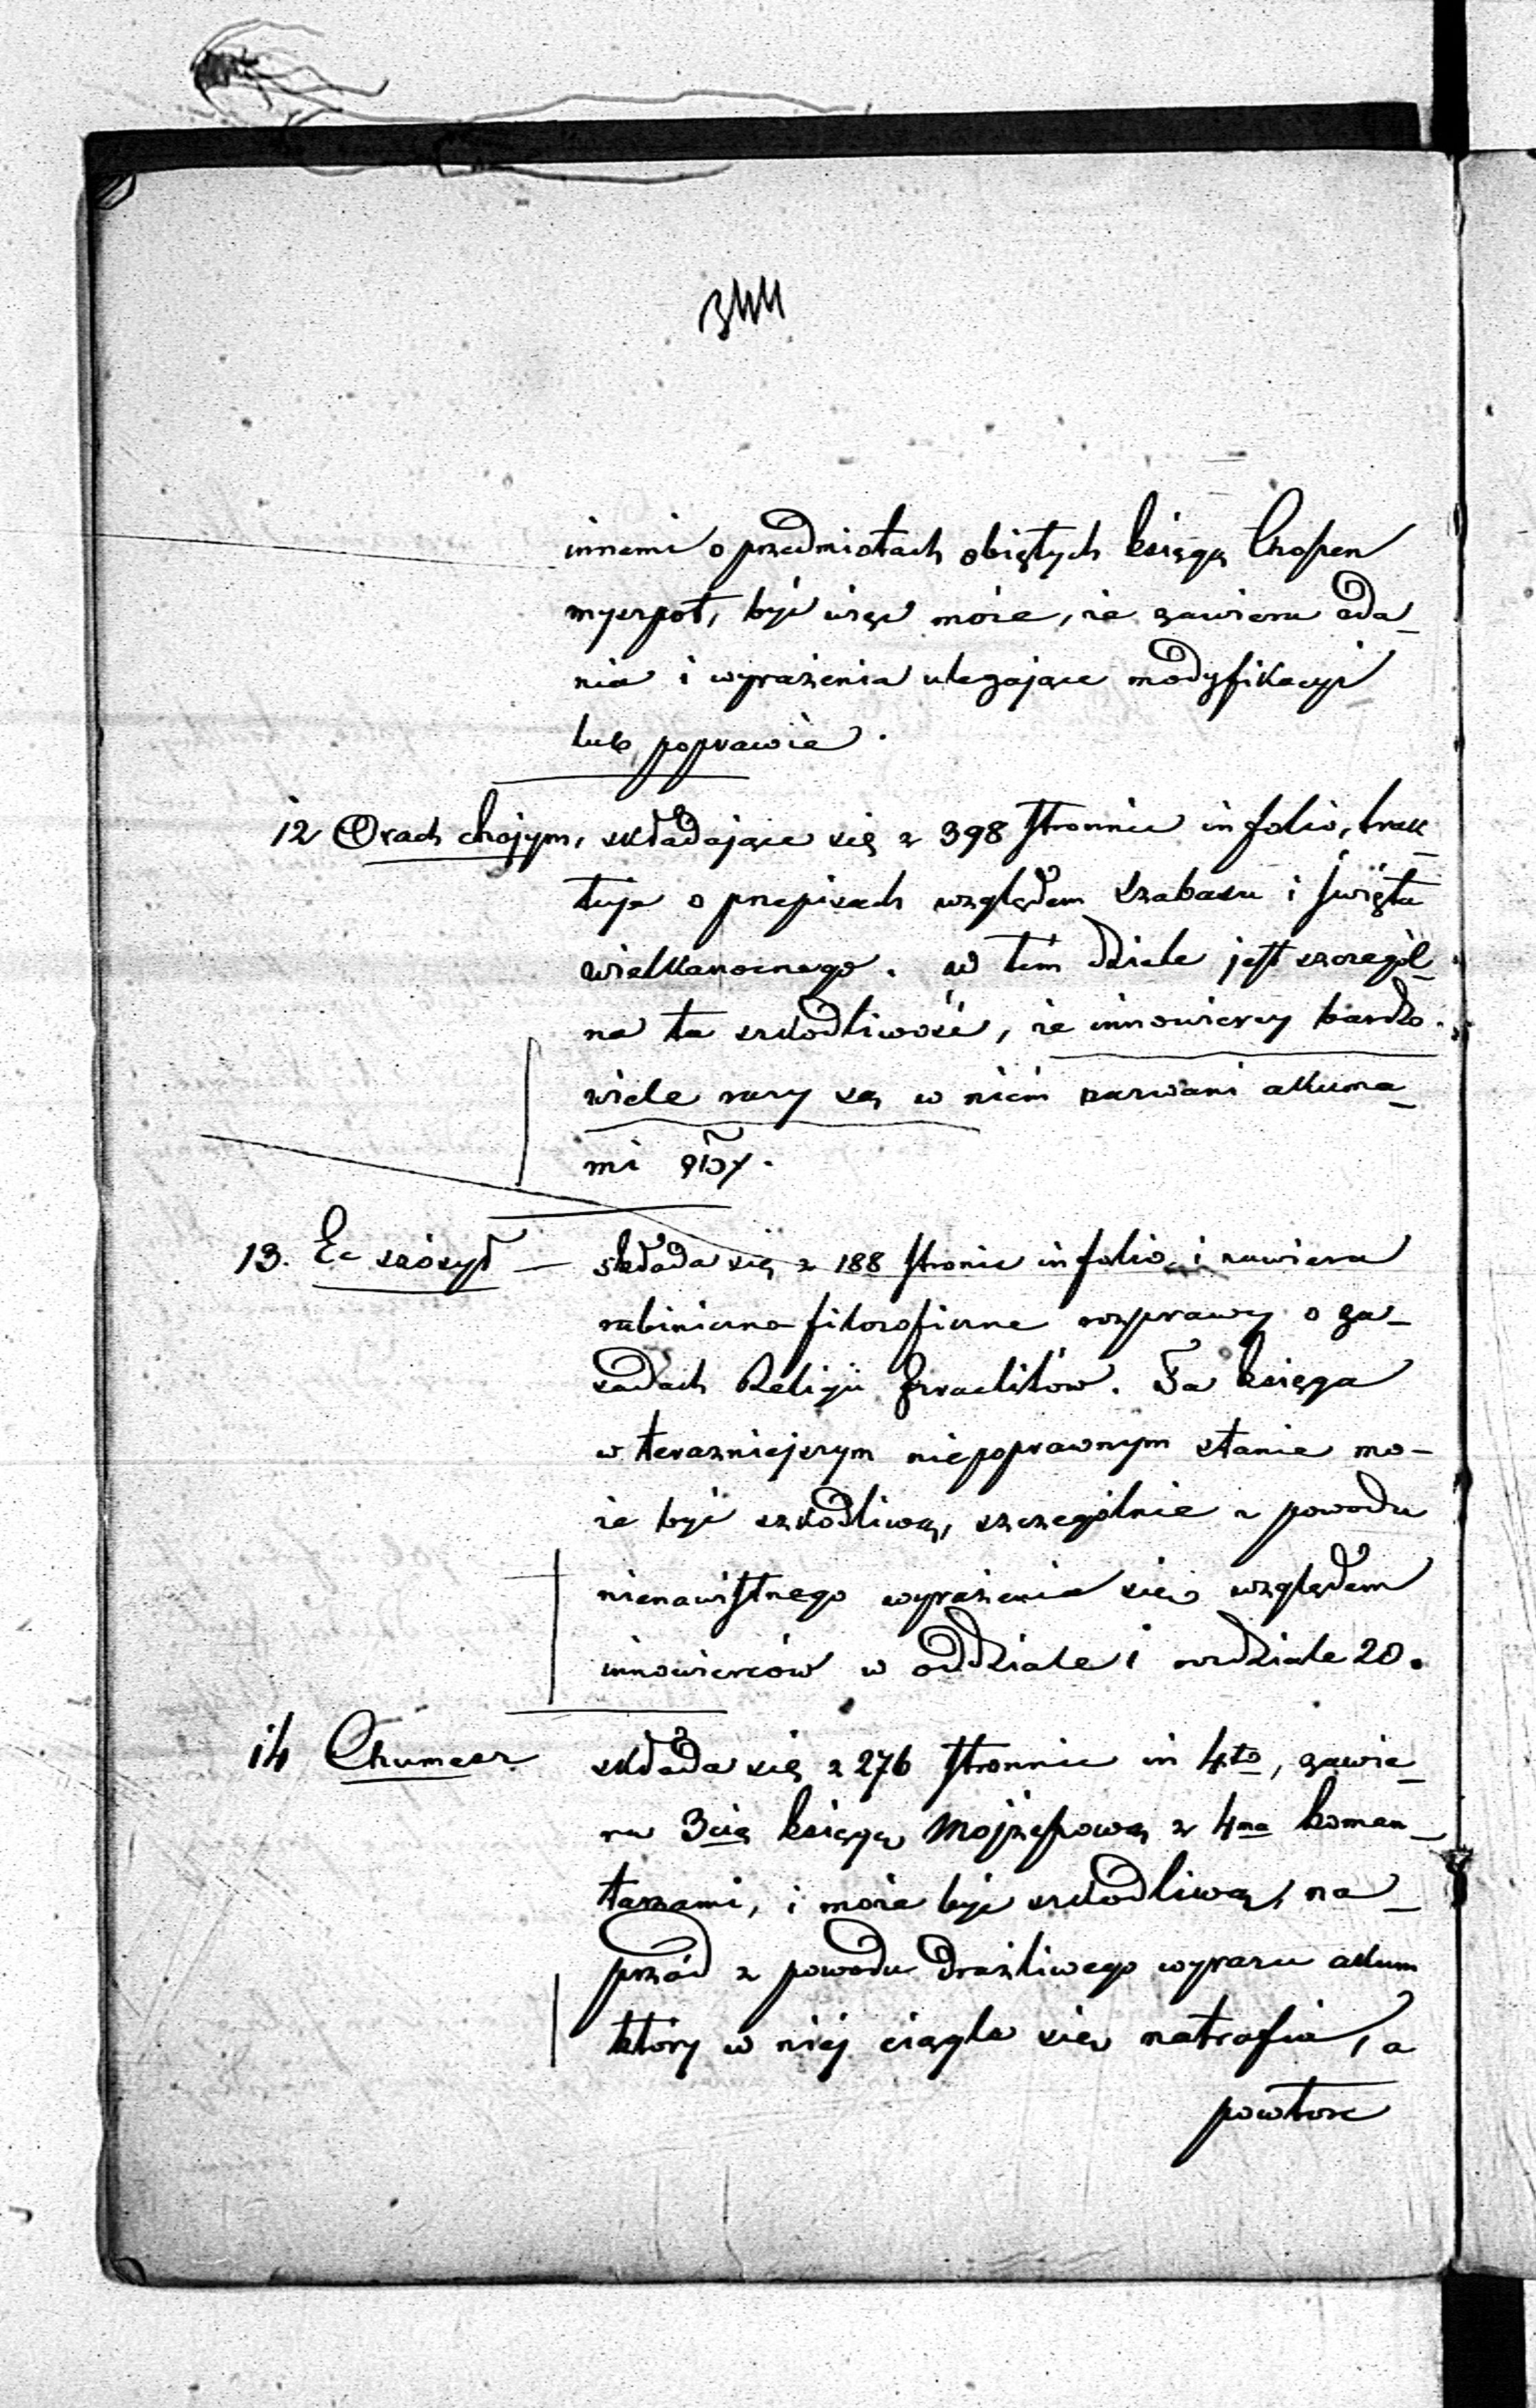 344
innemi o przedmiotach obiętych księgą Chofen
myszpot, być więc może, że zawiera zda_
nia i wyrażenia ulegające modyfikacyi
lub poprawie.
12 Orach chojym, składające się z 398 stronnic in folio, trak_
tuje o przepisach względem szabasu i święta
wielkanocnego. w tem dziele jest szczegól_
na ta szkodliwość, że innowiercy bardzo
wiele razy są w niem nazwani akuma_
mi
13. Ec szószyt — składa się z 188 stronic in folio i zawiera
rabiniczno-filozoficzne rozprawy o za_
sadach Religii Izraelitów. Ta księga
w teraźniejszym niepoprawnym stanie mo-
że być szkodliwą, szczególnie z powodu
nienawistnego wyrażenia się względem
innowierców w oddziale 1 rozdziale 20.
14 Chumesz składa się z 276 stronnic in 4to, zawie_
ra 3cią księgę Mojżeszową z 4ma komen_
tarzami, i może być szkodliwą, na_
przód z powodu drażliwego wyrazu akum
który w niej ciągle się natrafia, a
powtóre